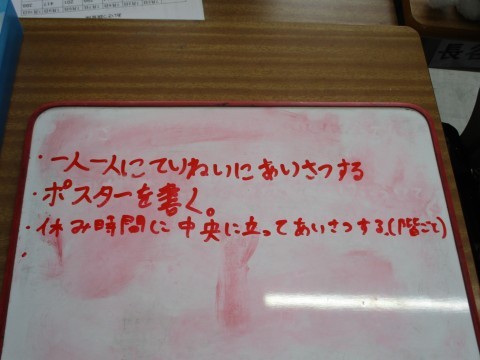 ・一人一人にていねいにあいさつする
・ポスターを書く。
・休み時間に中央に立ってあいさつする。(階ごと)
・